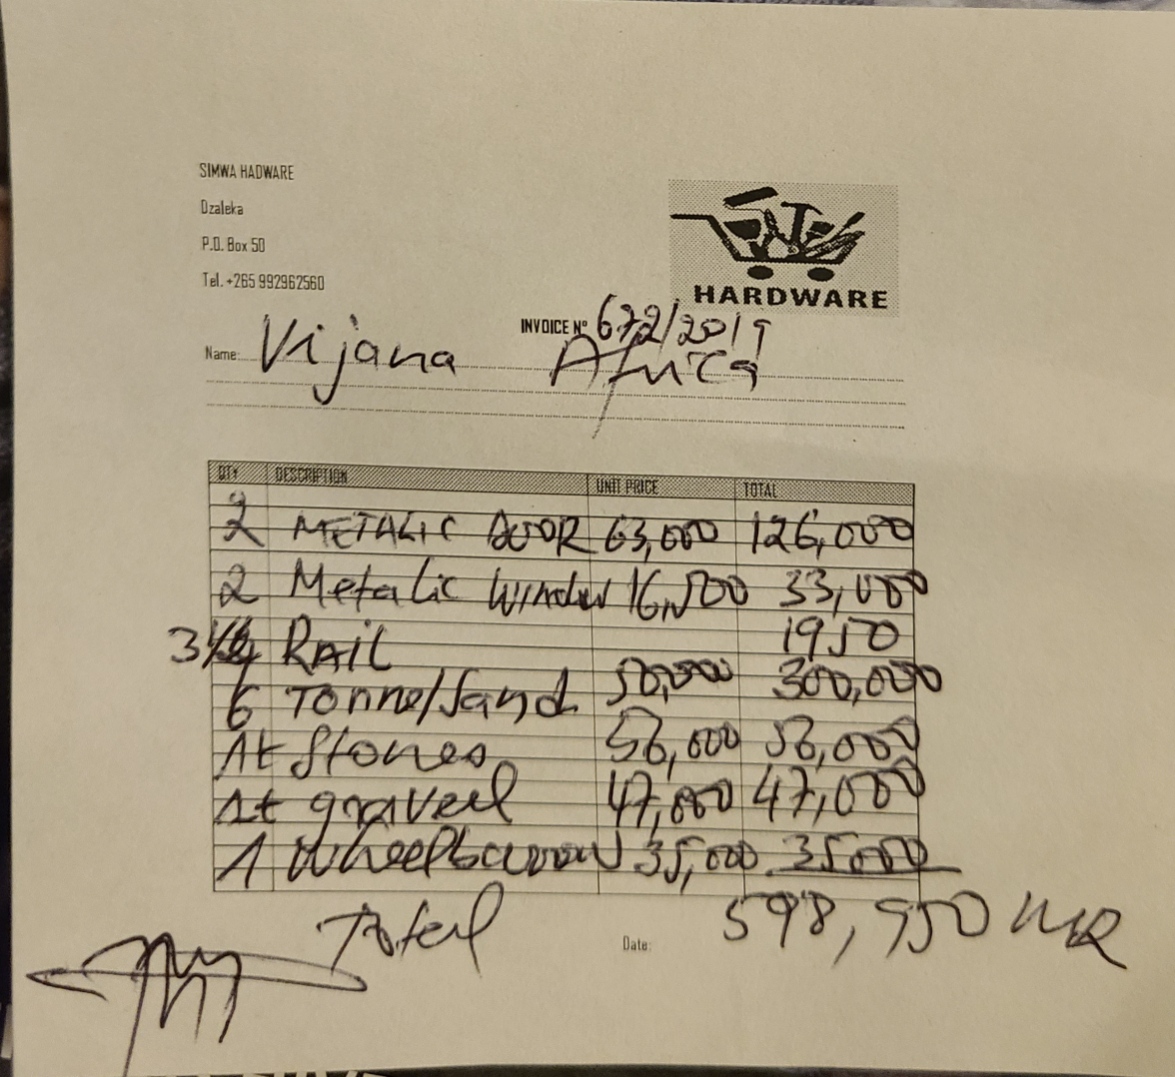 SIMWA HADWARE
Dzaleka
P.O. Box 50
Tel. +265 992962560
HARDWARE
INVOICE Nº 672/2019
Name: Vijana Africa
QTY DESCRIPTION UNIT PRICE TOTAL
2 METALIC DOOR 63,000 126,000
2 Metalic Window 16,500 33,000
RAIL 1950
6 Tonne/Sand 50,000 300,000
1t Stones 56,000 56,000
1t graveel 47,000 47,000
1 Wheelbarrow 35,000 35000
Total 598,950 MK
Date: